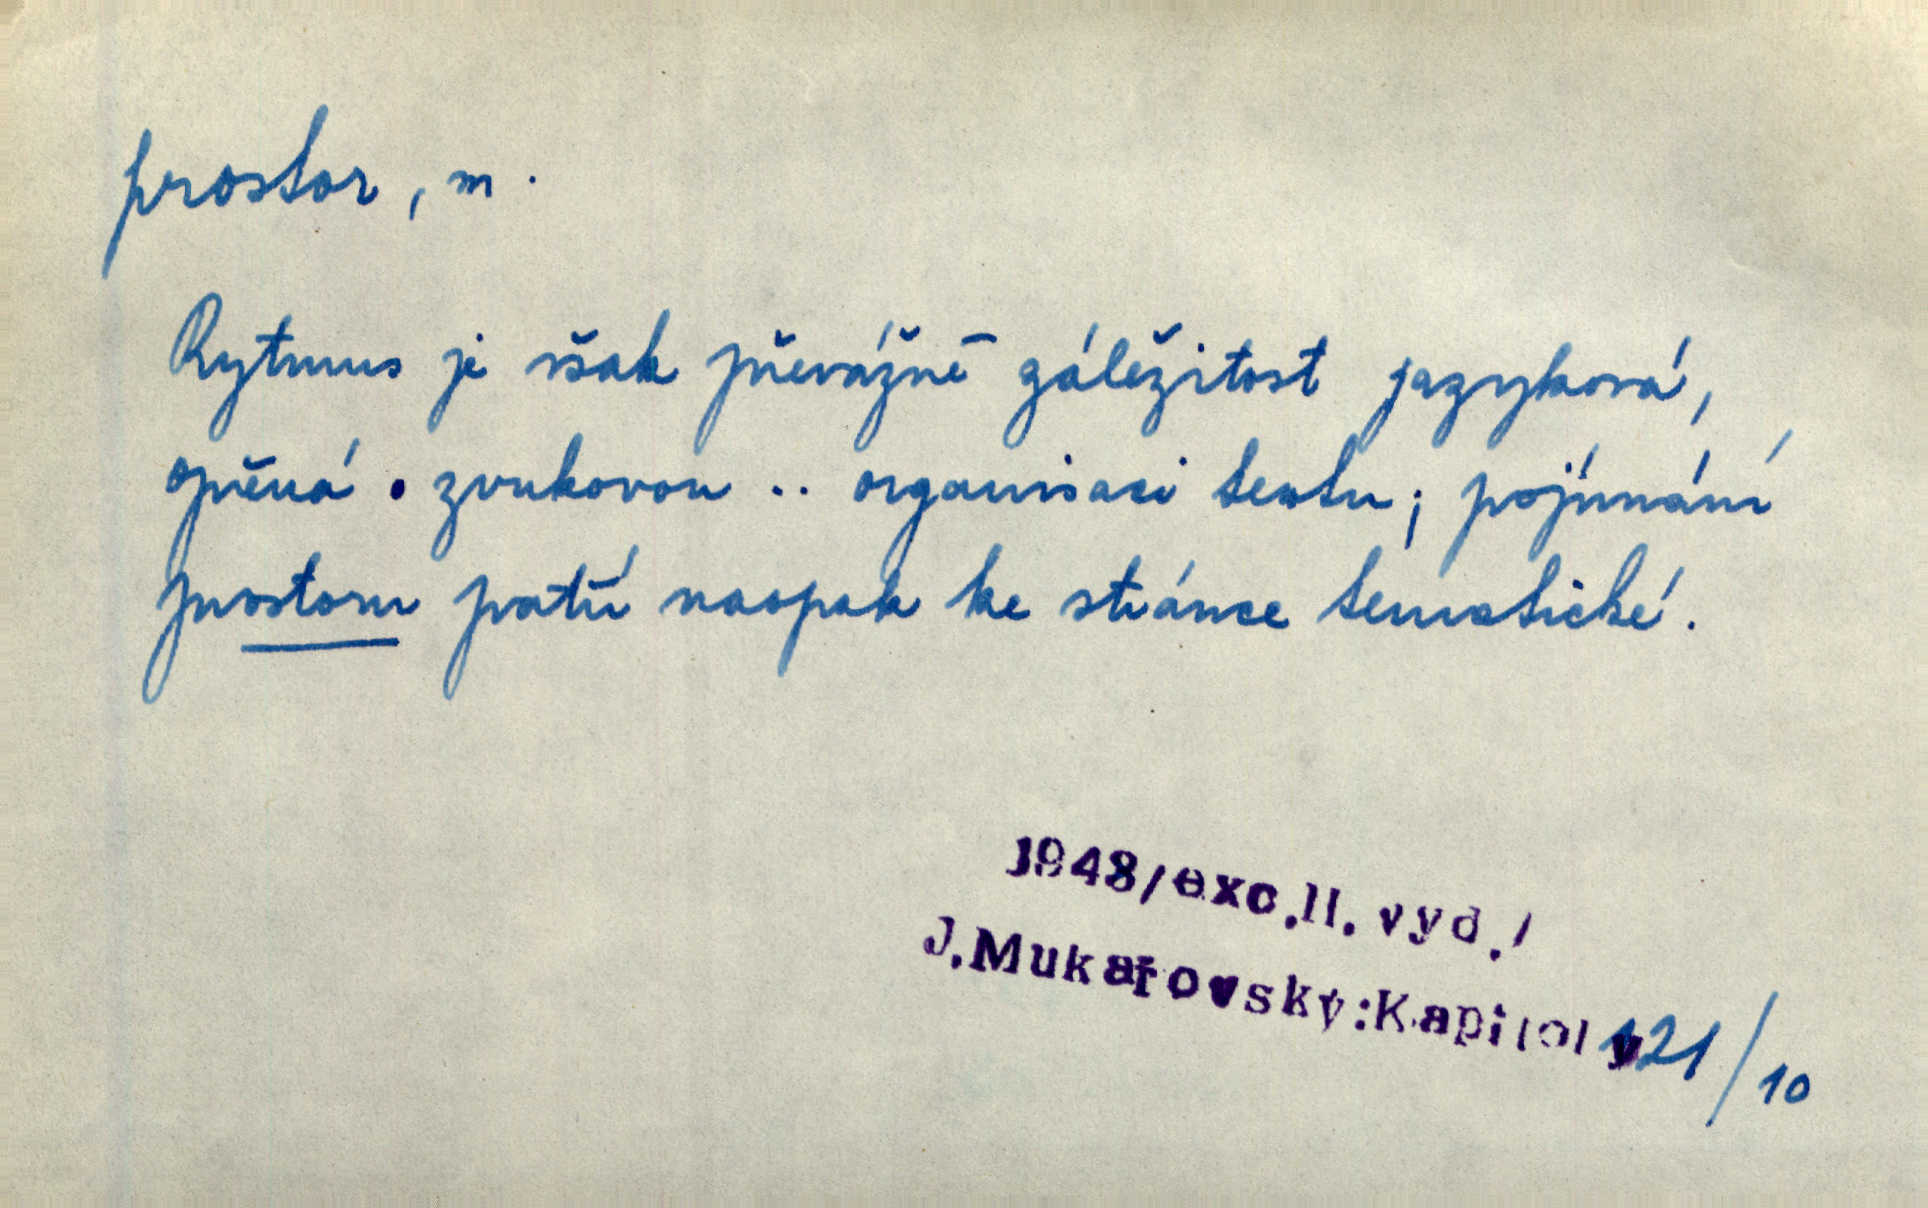 prostor, m.
Rytmus je však převážně záležitost jazyková,
opřená o zvukovou .. organisaci textu; pojímání
prostoru patří naopak ke stránce tematické.
1948/exc.II. vyd./
J.Mukařovský:Kapitoly 121/10